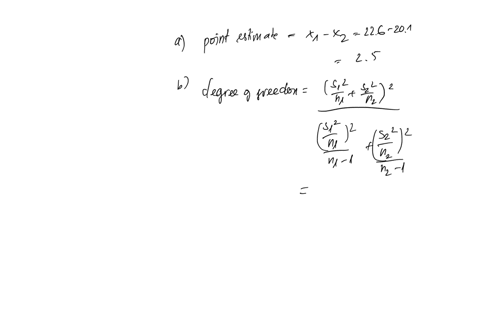 a) point estimate = x₁ - x₂ = 22.6 - 20.1
= 2.5
b) degree of freedom = (s₁²/n₁ + s₂²/n₂)² / ((s₁²/n₁)²/(n₁-1) + (s₂²/n₂)²/(n₂-1))
=